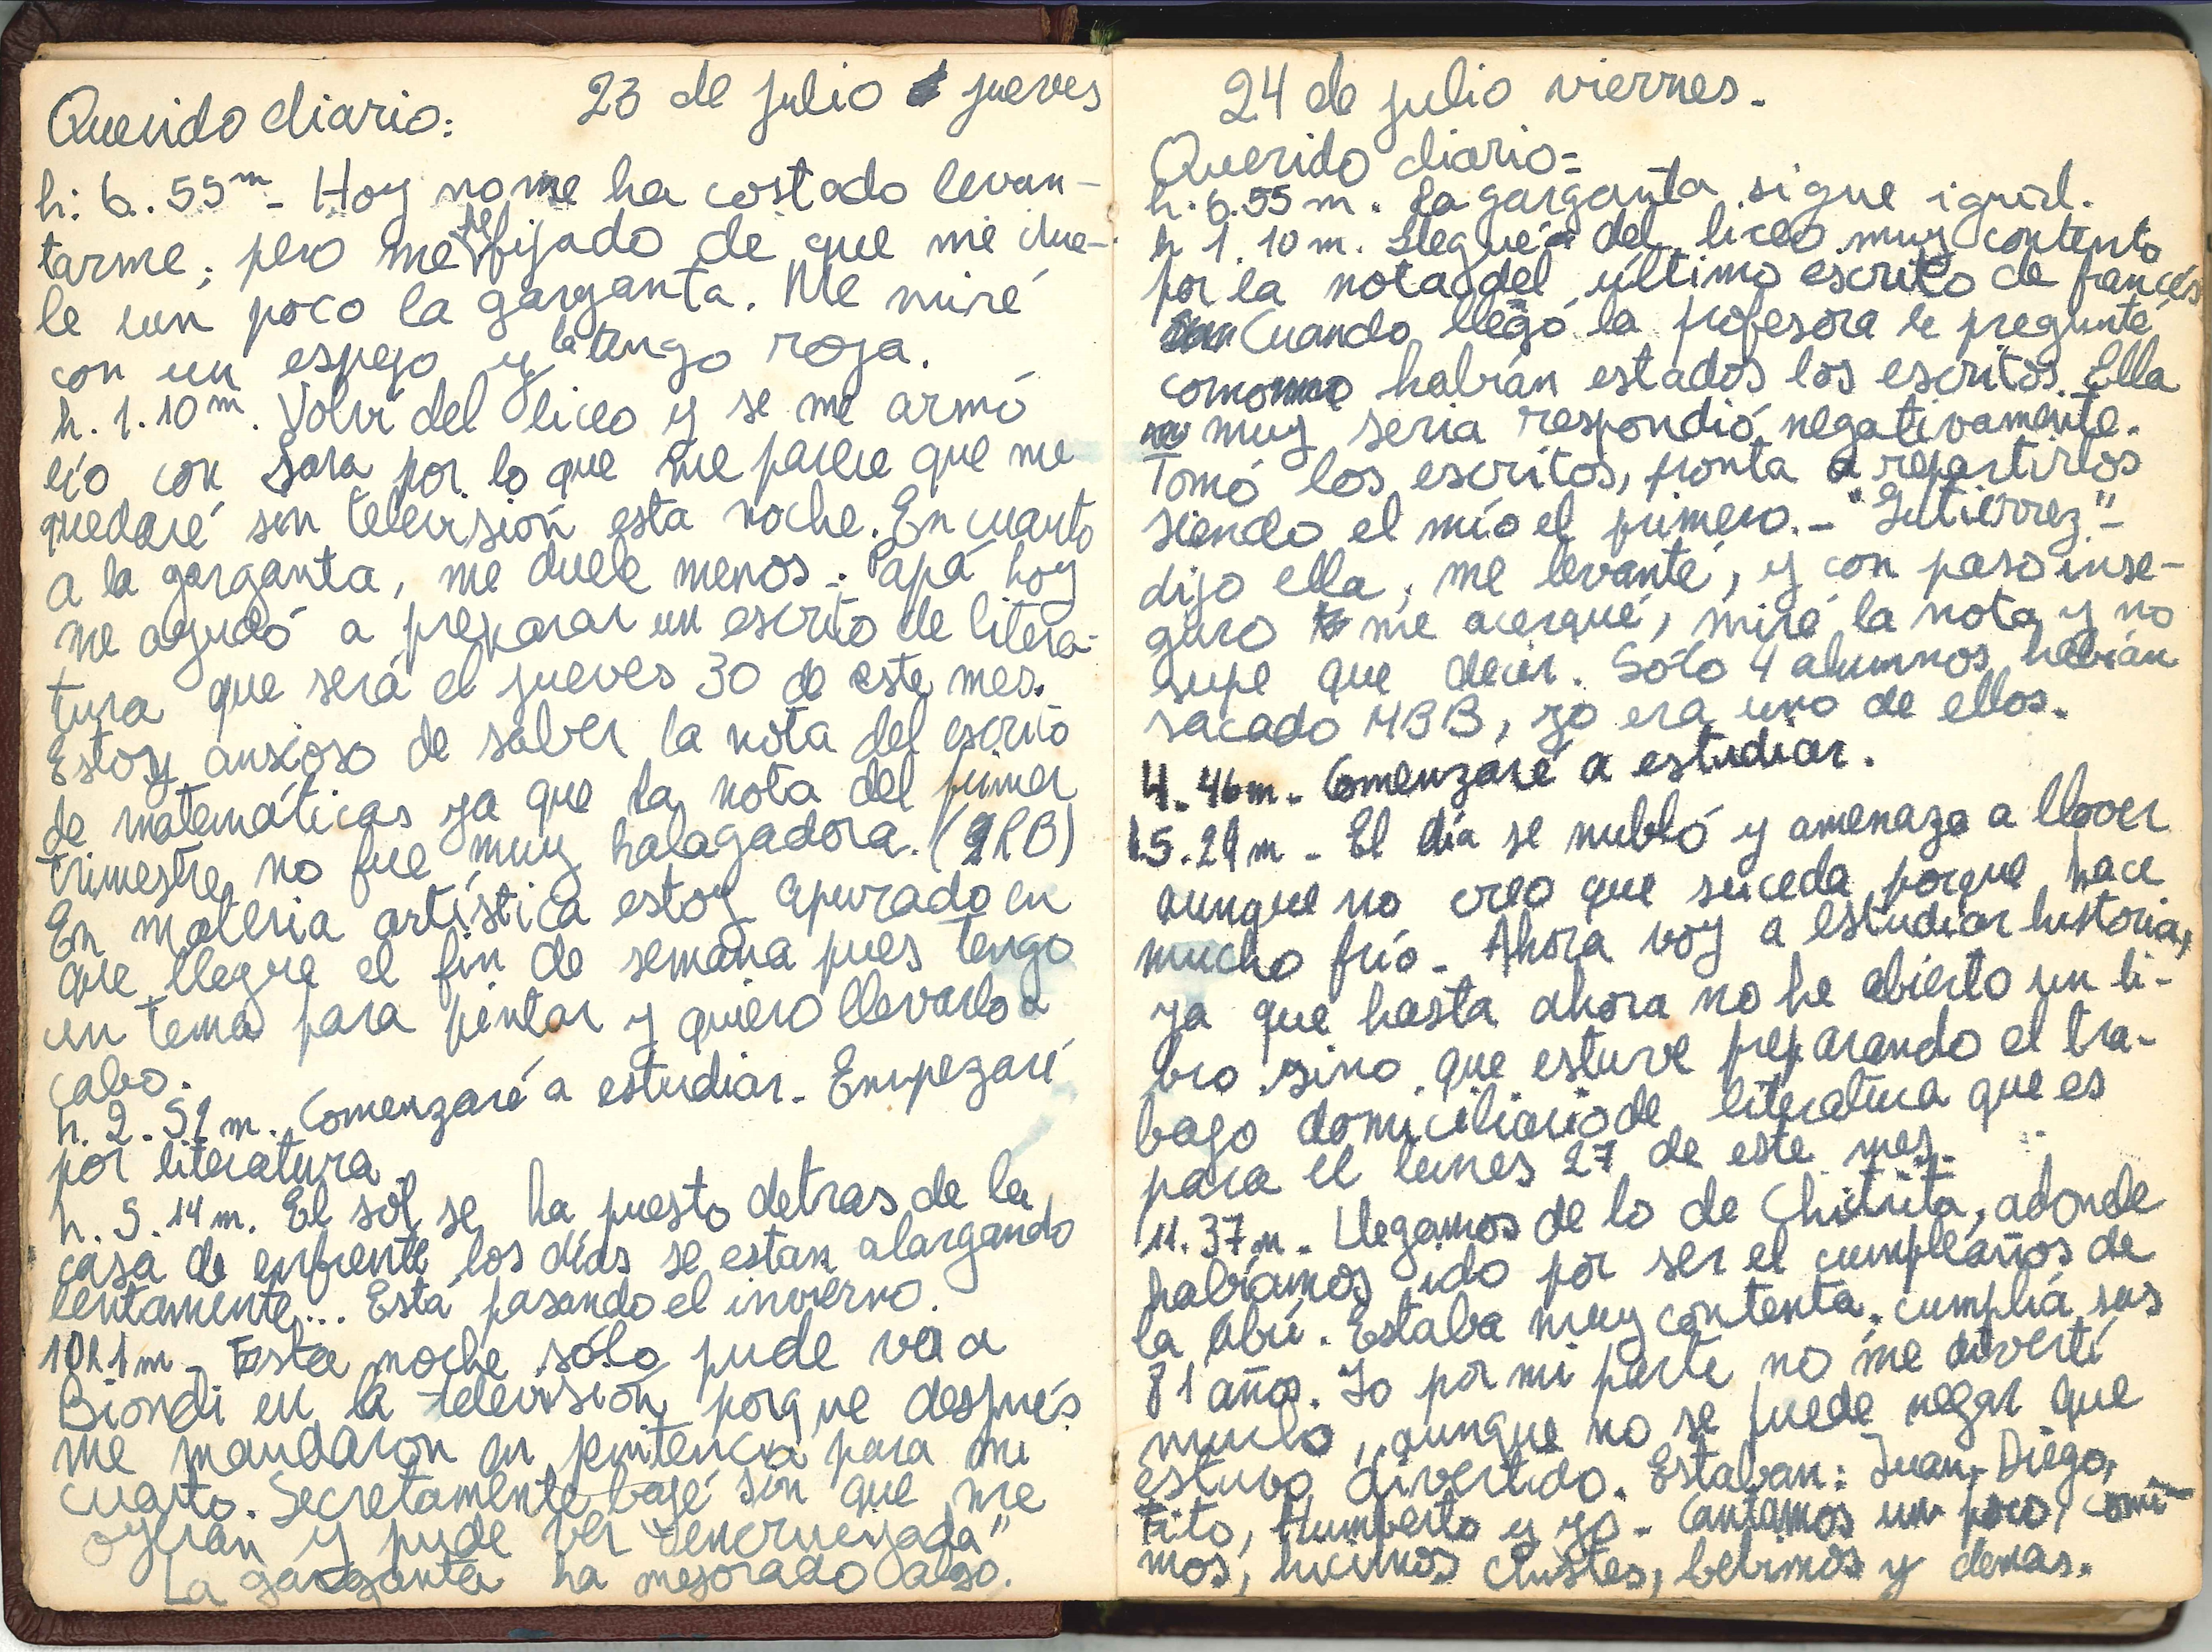 23 de julio jueves
Querido diario:
h: 6. 55m - Hoy no me ha costado levan-
tarme; pero me he fijado de que me due-
le un poco la garganta. Me miré
con un espejo y la tengo roja.
h. 1. 10m. Volví del liceo y se me armó
lío con Sara por lo que me parece que me
quedaré sin televisión esta noche. En cuanto
a la garganta, me duele menos. Papá hoy
me ayudó a preparar un escrito de litera-
tura que será el jueves 30 de este mes.
Estoy ansioso de saber la nota del escrito
de matemáticas ya que la nota del primer
trimestre no fue muy halagadora. (RB)
En materia artística estoy apurado en
que llegue el fin de semana pues tengo
un tema para pintar y quiero llevarlo a
cabo.
h. 2. 51 m. Comenzaré a estudiar. Empezaré
por literatura.
h. 5. 14 m. El sol se ha puesto detras de la
casa de enfrente los días se estan alargando
lentamente... Está pasando el invierno.
10h 1m - Esta noche sólo pude ver a
Biondi en la televisión porque después
me mandaron en penitencia para mi
cuarto. Secretamente bajé sin que me
oyeran y pude ver "encrucijada"
La garganta ha mejorado algo.
24 de julio viernes.
Querido diario=
h. 6.55 m. La garganta sigue igual.
h 1. 10 m. Llegué del liceo muy contento
por la nota del último escrito de francés
Cuando llegó la profesora le pregunté
como habían estados los escritos. Ella
muy seria respondió negativamente.
Tomó los escritos, pronta a repartirlos
siendo el mío el primero. - "Gutiérrez" -
dijo ella, me levanté, y con paso inse-
guro me acerqué, miré la nota y no
supe que decir. Sólo 4 alumnos habían
sacado MBB, yo era uno de ellos.
4. 46m. Comenzaré a estudiar.
5. 29 m - El día se nubló y amenaza a llover
aunque no creo que suceda porque hace
mucho frío - Ahora voy a estudiar historia,
ya que hasta ahora no he abierto un li-
bro sino que estuve preparando el tra-
bajo domiciliario de literatura que es
para el lunes 27 de este mes.
11. 37 m. Llegamos de lo de Chitita, adonde
habíamos ido por ser el cumpleaños de
la Abú. Estaba muy contenta. cumplía sus
81 años. Yo por mi parte no me divertí
mucho, aunque no se puede negar que
estuvo divertido. Estaban: Juan, Diego,
Tito, Humberto y yo - Cantamos un poco, comi-
mos, hicimos chistes, bebimos y demas.